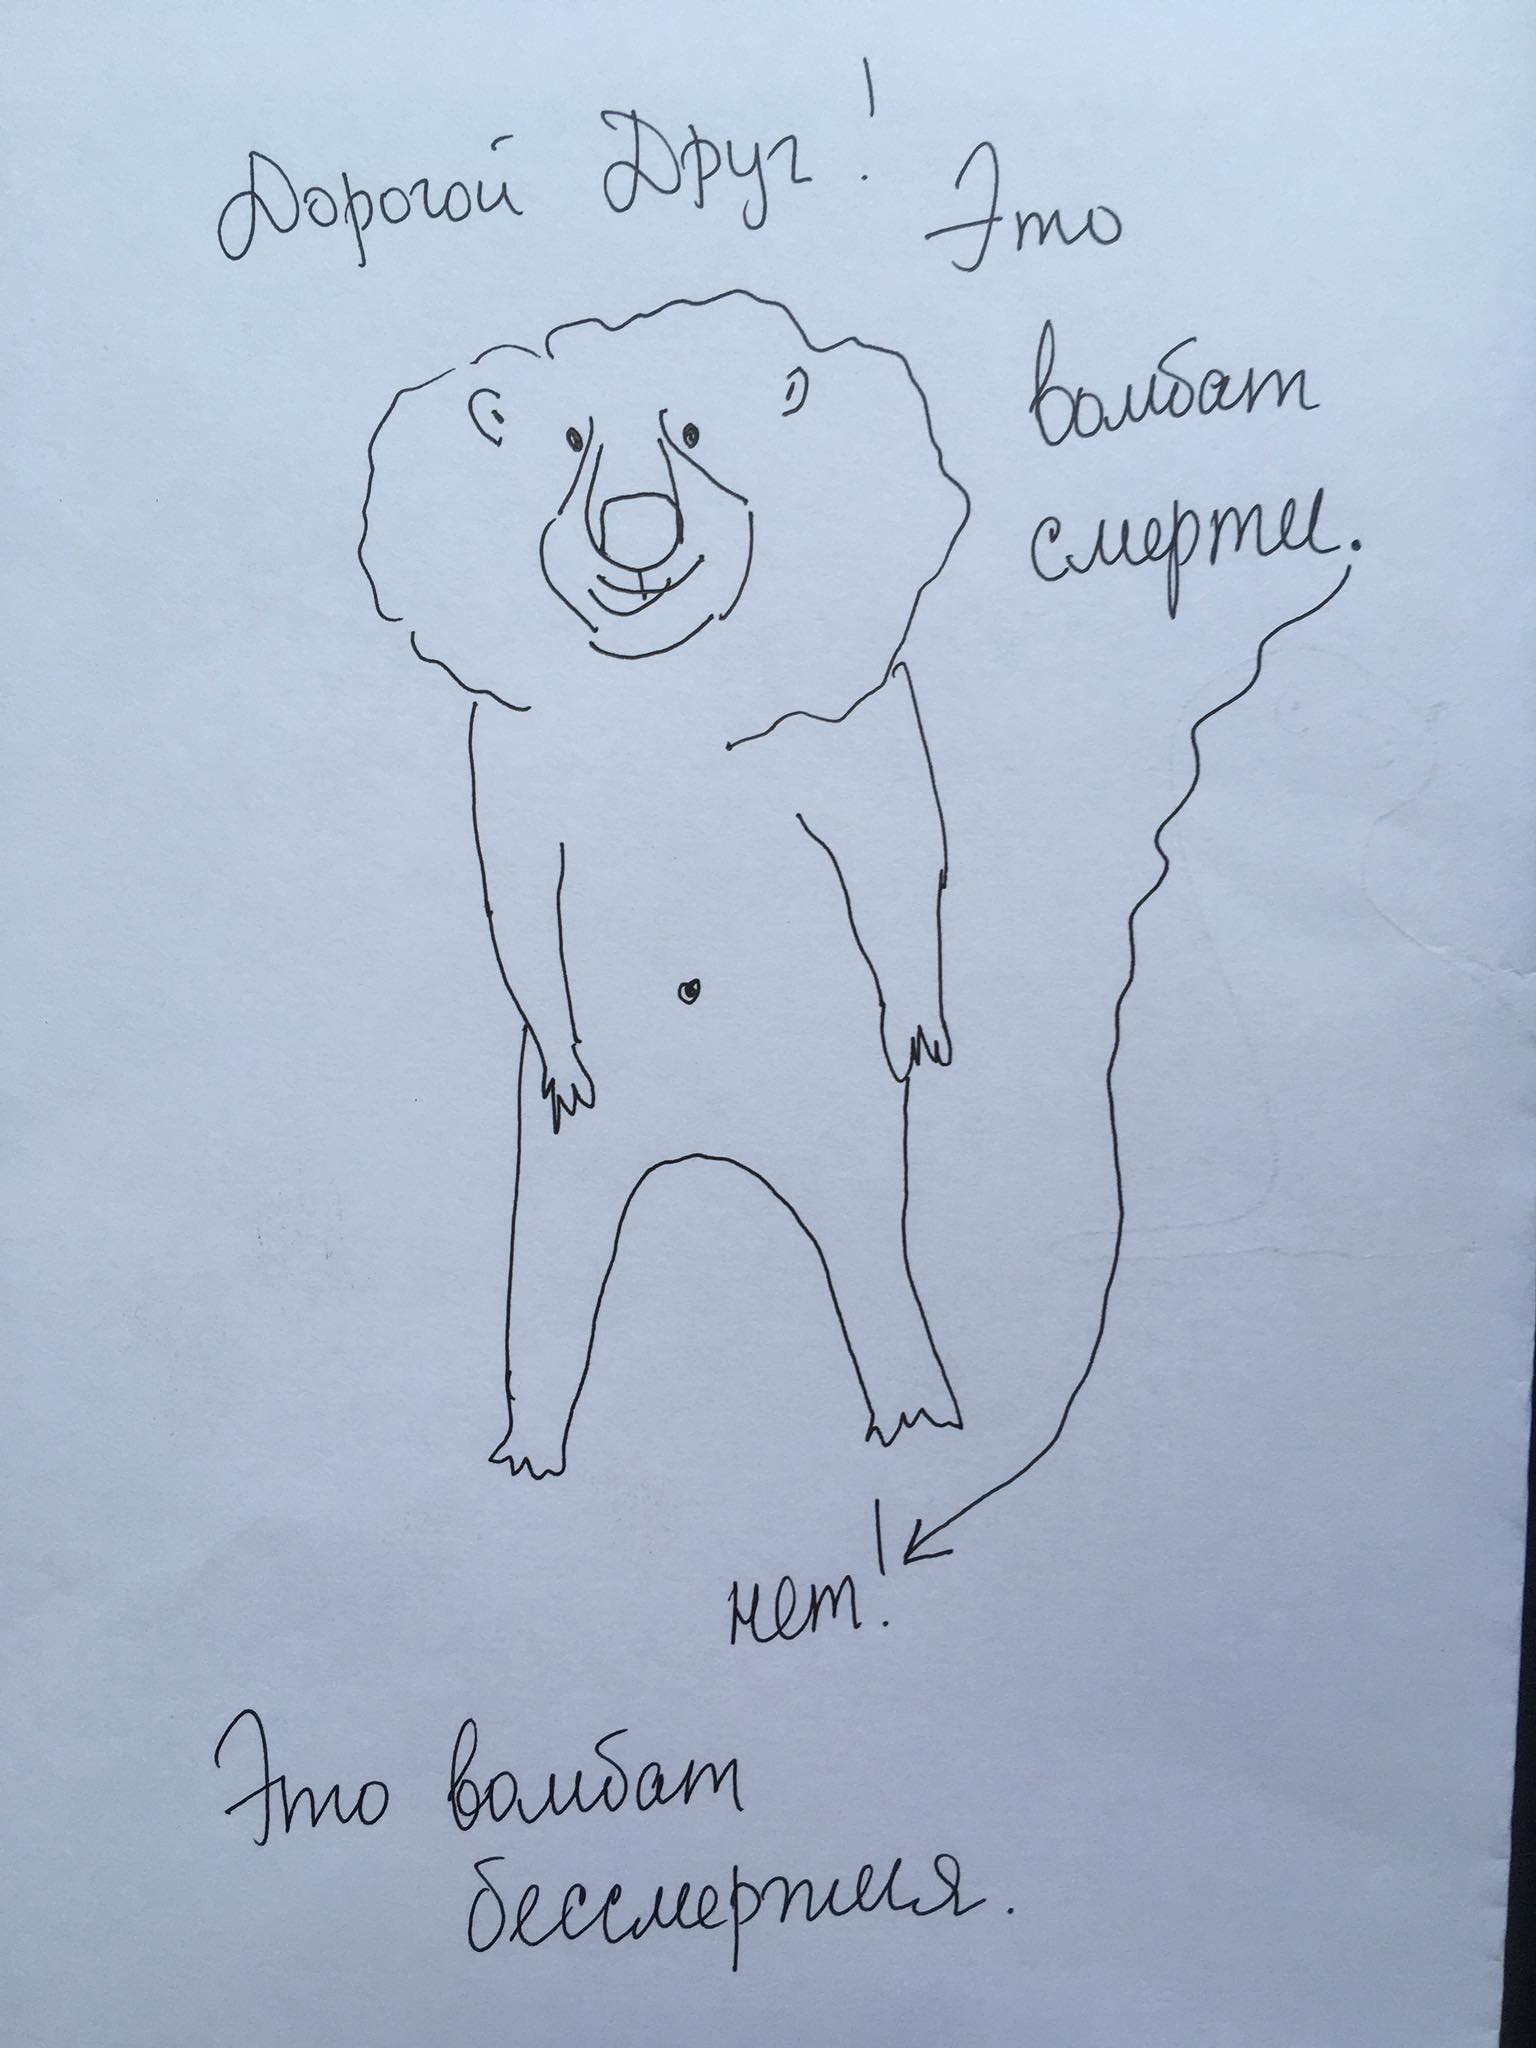 Дорогой Друг! Это
вомбат
смерти.
нет!
Это вомбат
бессмертия.